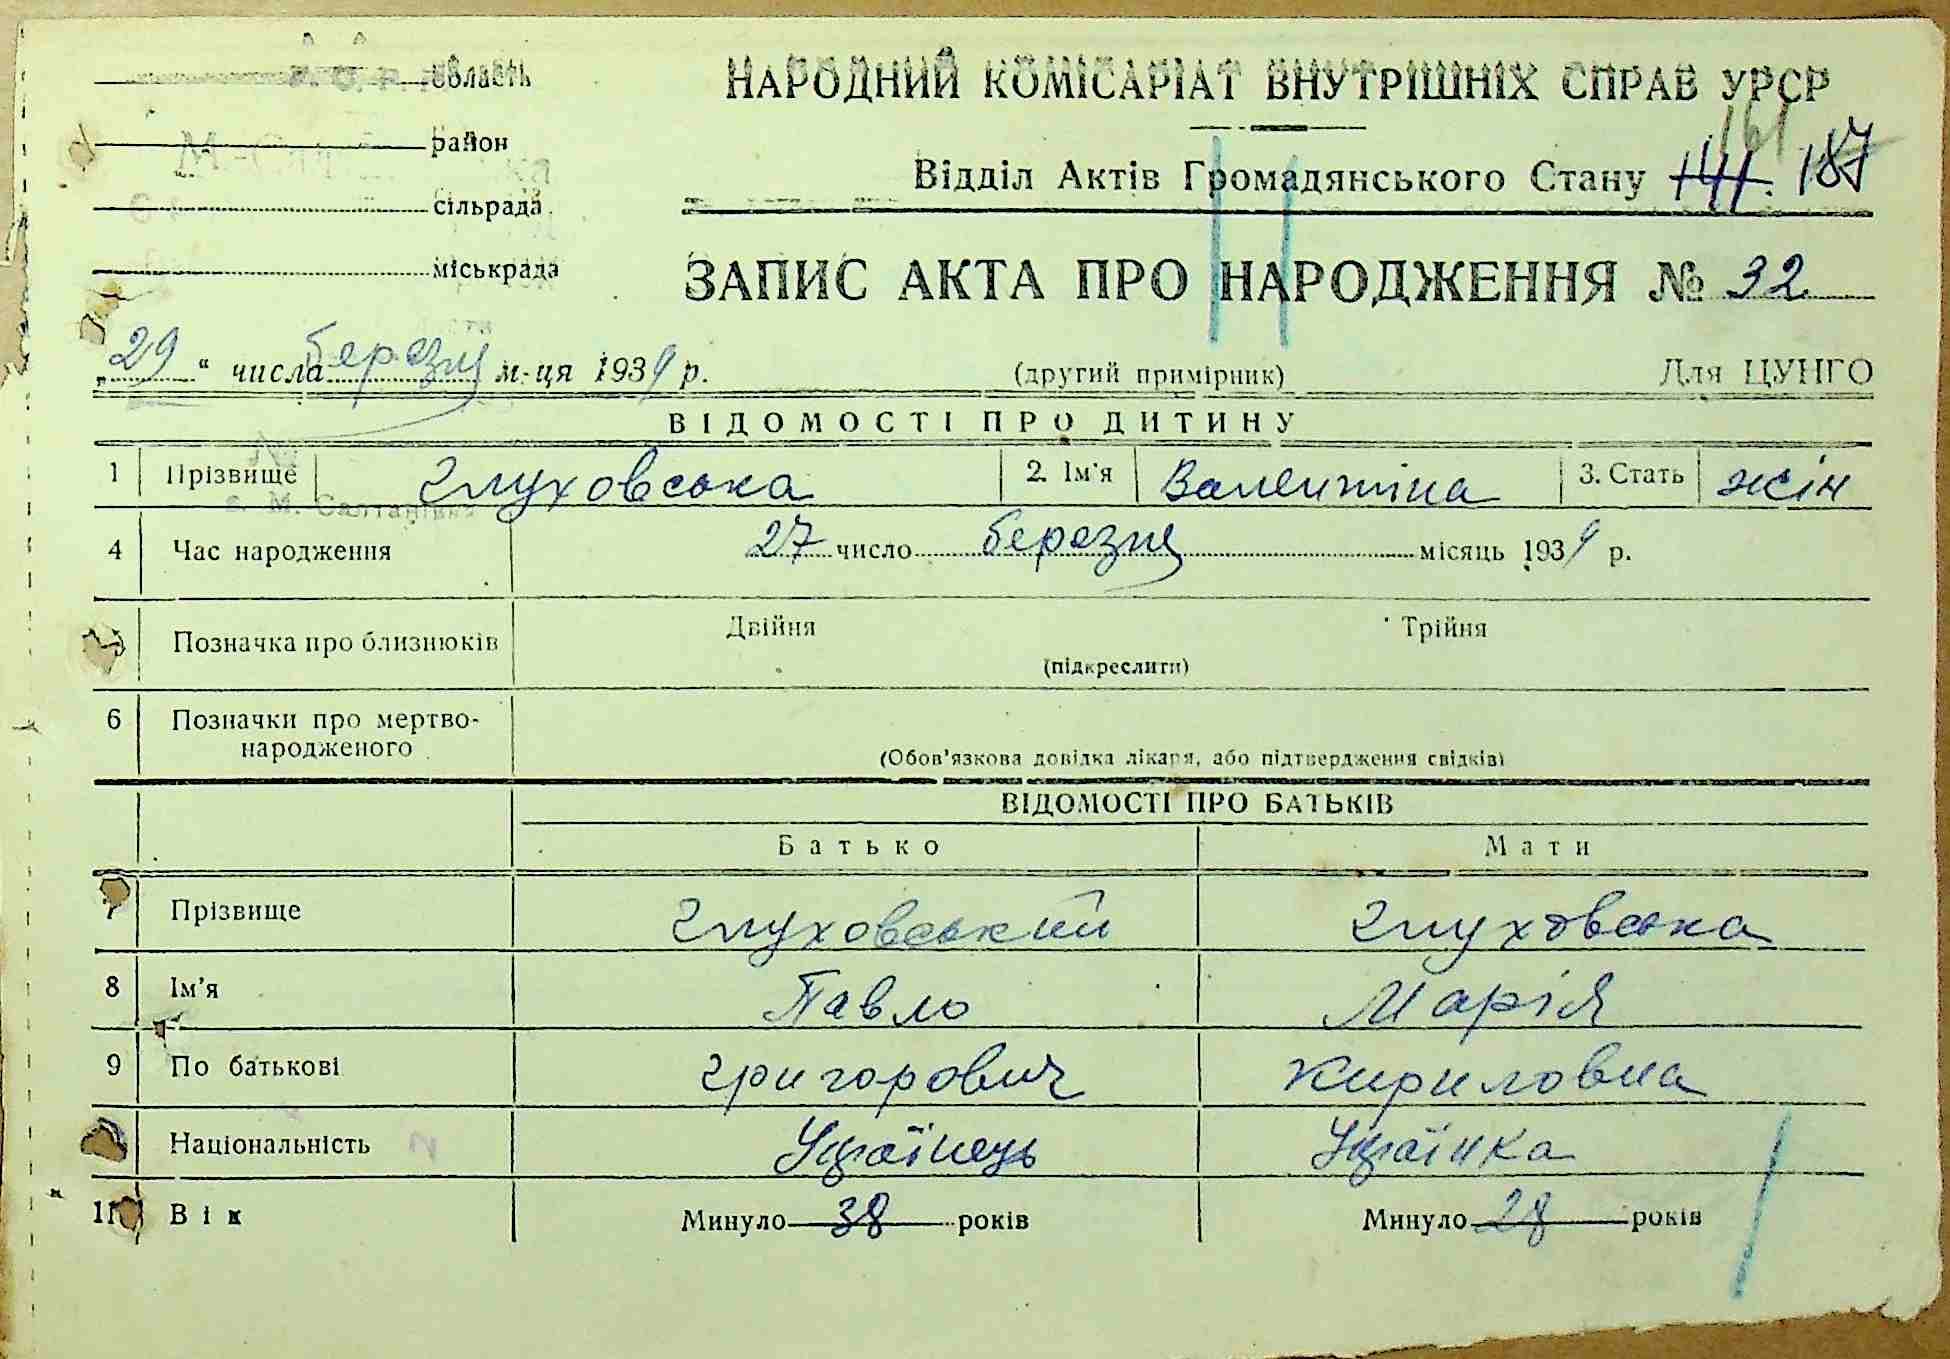 область
НАРОДНИЙ КОМІСАРІАТ ВНУТРІШНІХ СПРАВ УРСР
район
161
Відділ Актів Громадянського Стану 187
сільрада
міськрада
ЗАПИС АКТА ПРО НАРОДЖЕННЯ № 32
„29“ числа березня м-ця 1939 р.
(другий примірник)
Для ЦУНГО
ВІДОМОСТІ ПРО ДИТИНУ
1 Прізвище Глуховська 2. Ім'я Валентіна 3. Стать жін
с. М. Салтанівка
4 Час народження 27 число березня місяць 1939 р.
Позначка про близнюків Двійня Трійня
(підкреслити)
6 Позначки про мертво-
народженого
(Обов'язкова довідка лікаря, або підтвердження свідків)
ВІДОМОСТІ ПРО БАТЬКІВ
Батько Мати
7 Прізвище Глуховський Глуховська
8 Ім'я Павло Марія
9 По батькові Григорович Кириловна
Національність Українець Українка
11 Вік Минуло 38 років Минуло 28 років